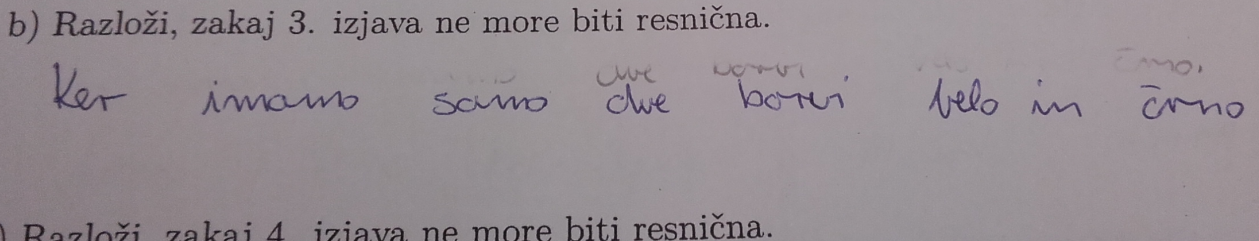 b) Razloži, zakaj 3. izjava ne more biti resnična.
Ker imamo samo dve borvi belo in črno
Razloži, zakaj 4. izjava ne more biti resnična.